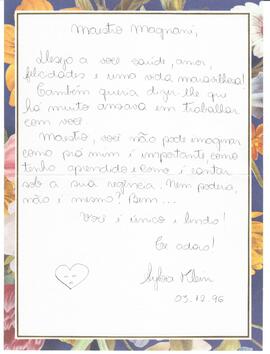 Maestro Magnani,
Desejo a você saúde, amor,
felicidades e uma vida maravilhosa!
Também queria dizer-lhe que
há muito ansiava em trabalhar
com você.
Maestro, você não pode imaginar
como prá mim é importante, como
tenho aprendido e como é cantar
sob a sua regência. Nem poderia,
não é mesmo? Bem...
Você é único e lindo!
Te adoro!
Sylvia Klein
03.12.96